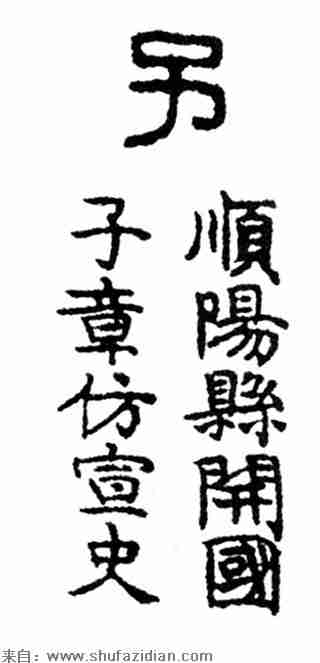 另
順陽縣開國
子章仿宣史
来自：www.shufazidian.com